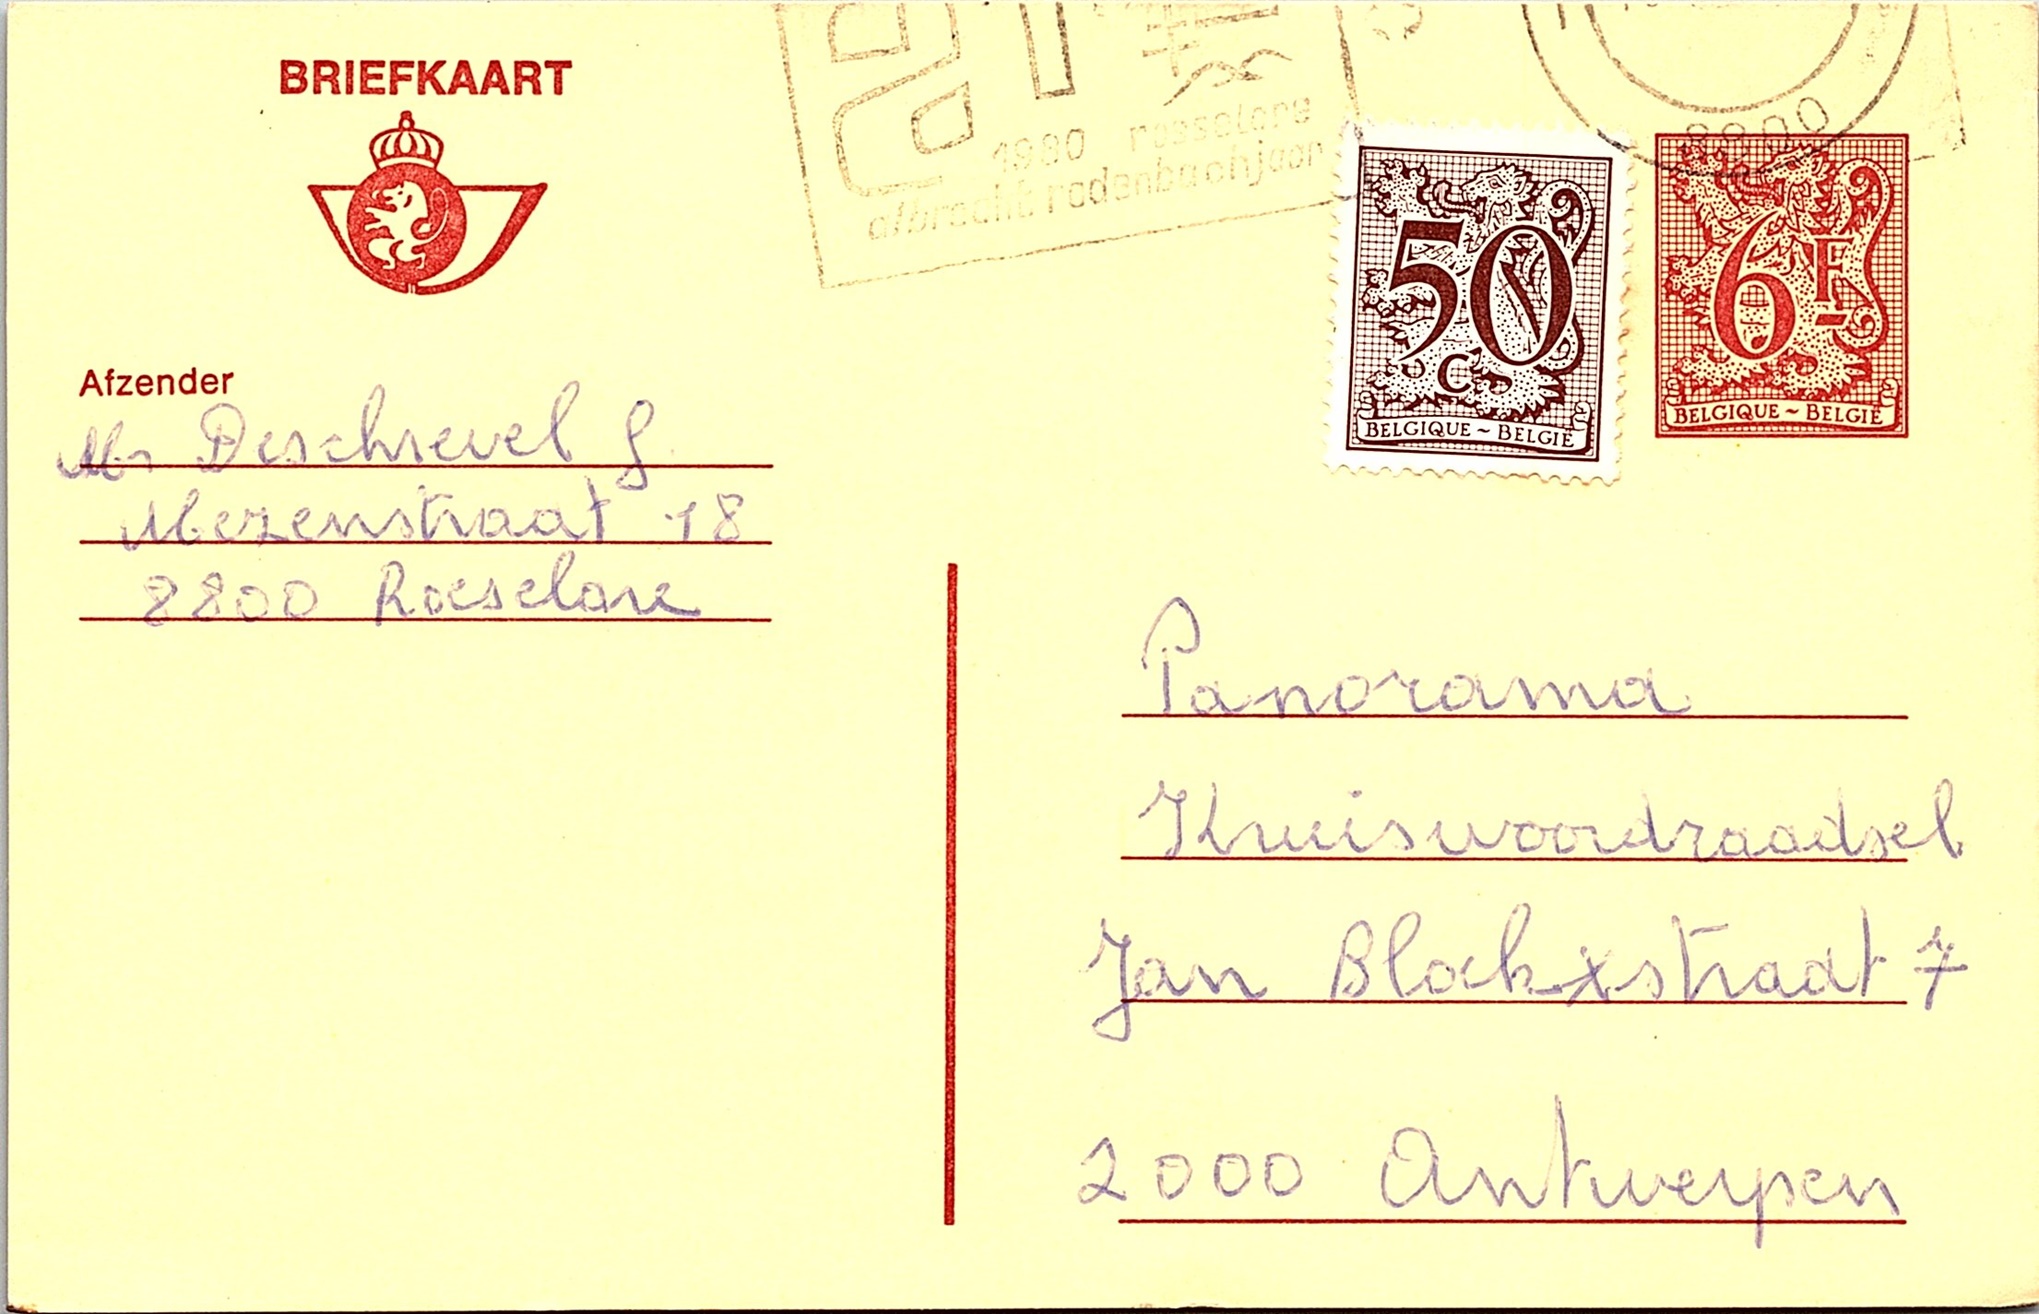 BRIEFKAART
1980 roeselare
albrecht rodenbachjaar
8800
50
C
BELGIQUE ~ BELGIË
6F
BELGIQUE ~ BELGIË
Afzender
Mr Deschrevel G.
Mezenstraat 18
8800 Roeselare
Panorama
Kruiswoordraadsel
Jan Blockxstraat 7
2000 Antwerpen